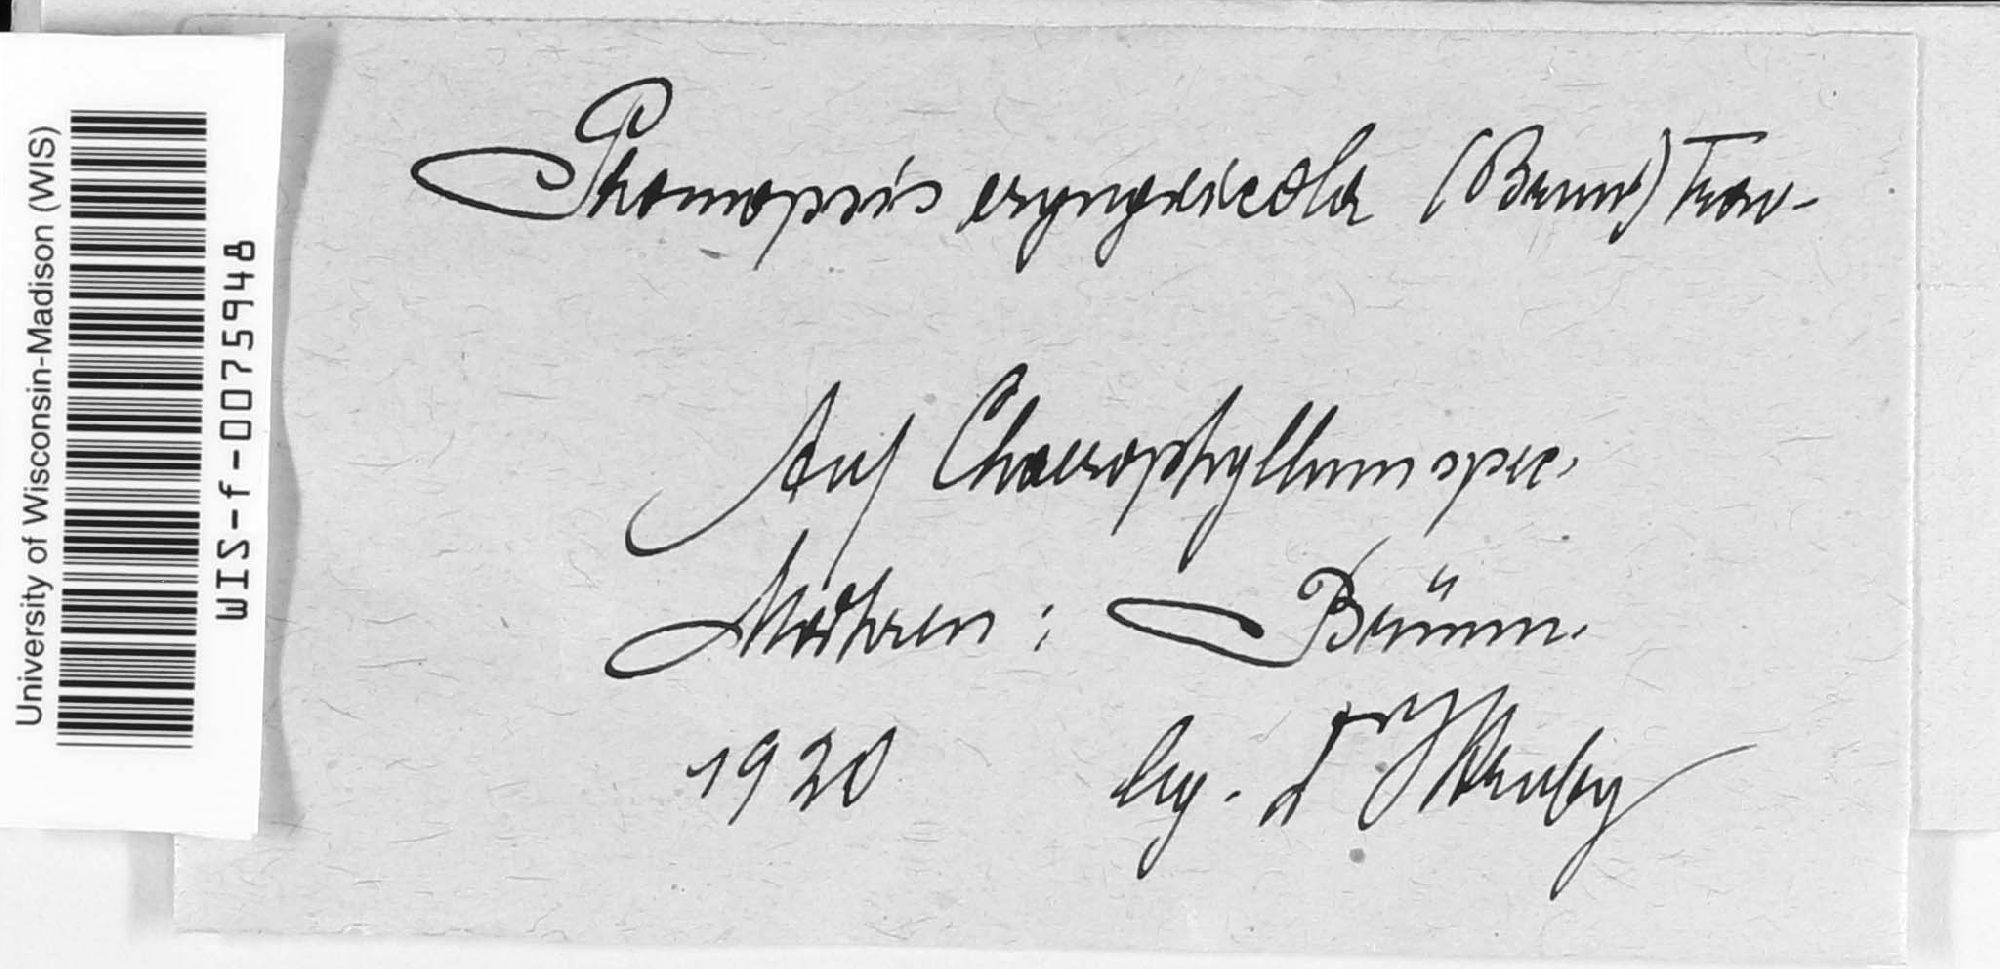 University of Wisconsin-Madison (WIS)
WIS-f-0075948
Phomopsis eryngiicola (Brun) Trav-
Auf Chaerophyllum spec.
Mähren : Brünn.
1920 leg. Dr J Hruby